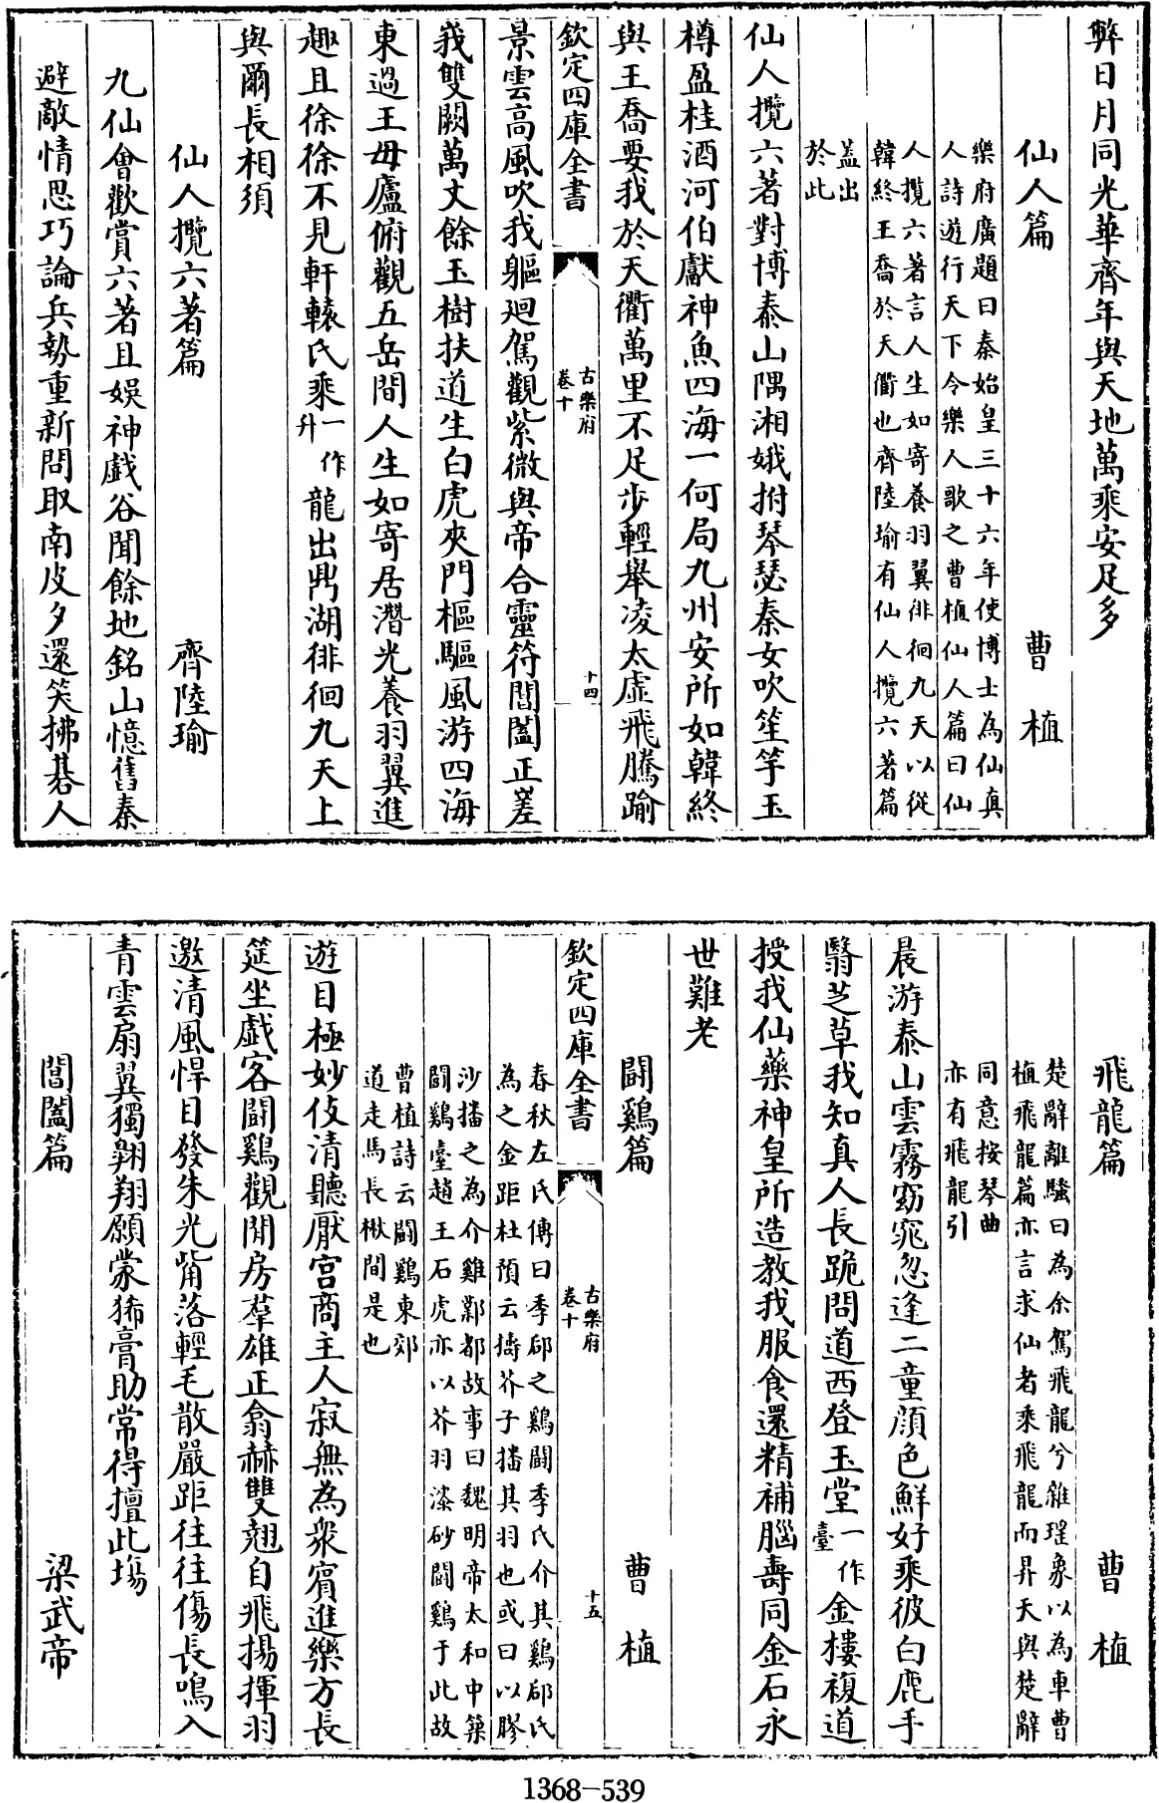 弊日月同光華齊年與天地萬乘安足多
仙人篇 曹植
樂府廣題曰秦始皇三十六年使博士為仙真
人詩遊行天下令樂人歌之曹植仙人篇曰仙
人攬六著言人生如寄養羽翼徘徊九天以從
韓終王喬於天衢也齊陸瑜有仙人攬六著篇
蓋出
於此
仙人攬六著對博泰山隅湘娥拊琴瑟秦女吹笙竽玉
樽盈桂酒河伯獻神魚四海一何局九州安所如韓終
與王喬要我於天衢萬里不足步輕舉凌太虛飛騰踰
欽定四庫全書
古樂府
卷十
十四
景雲高風吹我軀廻駕觀紫微與帝合靈符閶闔正嵳
峩雙闕萬丈餘玉樹扶道生白虎夾門樞驅風游四海
東過王母廬俯觀五岳間人生如寄居潛光養羽翼進
趣且徐徐不見軒轅氏乘一作升龍出鼎湖徘徊九天上
與爾長相須
仙人攬六著篇 齊陸瑜
九仙會歡賞六著且娛神戲谷聞餘地銘山憶舊秦
避敵情思巧論兵勢重新問取南皮夕還笑拂棊人
飛龍篇 曹植
楚辭離騷曰為余駕飛龍兮雜瑤象以為車曹
植飛龍篇亦言求仙者乘飛龍而昇天與楚辭
同意按琴曲
亦有飛龍引
晨游泰山雲霧窈窕忽逢二童顔色鮮好乘彼白鹿手
翳芝草我知真人長跪問道西登玉堂一作臺金樓複道
授我仙藥神皇所造教我服食還精補腦壽同金石永
世難老
鬭鷄篇 曹植
春秋左氏傳曰季郈之鷄鬭季氏介其鷄郈氏
為之金距杜預云擣芥子播其羽也或曰以膠
欽定四庫全書
古樂府
卷十
十五
沙播之為介雞鄴都故事曰魏明帝太和中築
鬭鷄臺趙王石虎亦以芥羽漆砂鬭鷄于此故
曹植詩云鬭鷄東郊
道走馬長楸間是也
遊目極妙伎清聽厭宮商主人寂無為衆賓進樂方長
筵坐戲客鬭鷄觀閒房羣雄正翕赫雙翹自飛揚揮羽
邀清風悍目發朱光觜落輕毛散嚴距往往傷長鳴入
青雲扇翼獨翱翔願蒙狶膏助常得擅此塲
閶闔篇 梁武帝
1368-539